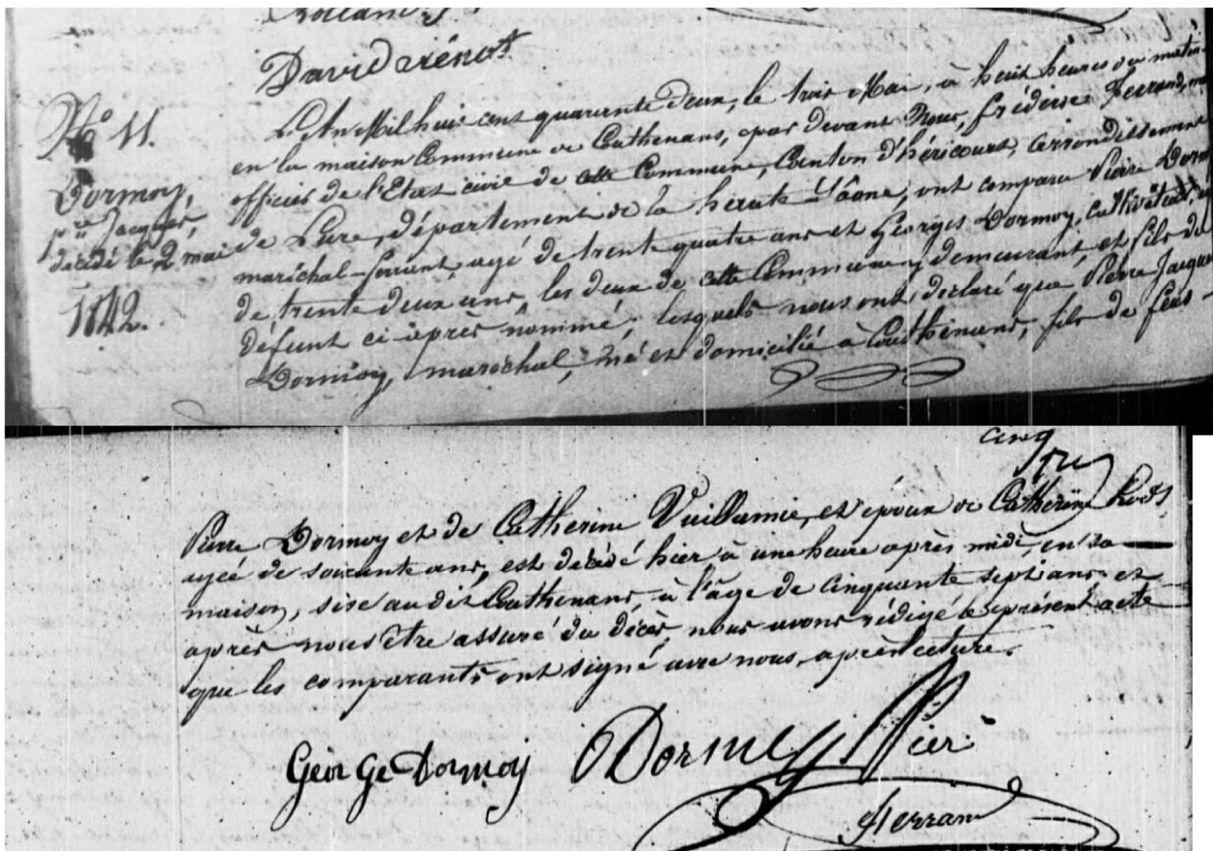 David Diénot
N.º 11.
Dormoy,
p.re Jacques,
décédé le 2 mai
1842.
L'An Mil huit cent quarante deux, le trois Mai, à huit heures du matin
en la maison Commune de Couthenans, par devant Nous, fréderic Ferrand,
officier de l'Etat civil de cette Commune, Canton d'héricourt, arrondissement
de Lure, département de la haute Saône, ont comparu Pierre Dormoy
maréchal-ferrant, agé de trente quatre ans et Georges Dormoy, cultivateur,
de trente deux ans, les deux de cette Commune y demeurant, et fils du
défunt ci-après nommé, lesquels nous ont declaré que Pierre Jacques
Dormoy, maréchal, né et domicilié à Couthenans, fils de feus
cinq
Pierre Dormoy et de Catherine Vuillamie, et époux de Catherine
agée de soixante ans, est décédé hier à une heure après midi, en sa
maison, sise audit Couthenans, à l'âge de cinquante sept ans et
après nous être assuré du décès, nous avons rédigé le présent acte
que les comparants ont signé avec nous, après lecture.
GéorGe Dormoy Dormoy Pier
Ferrand